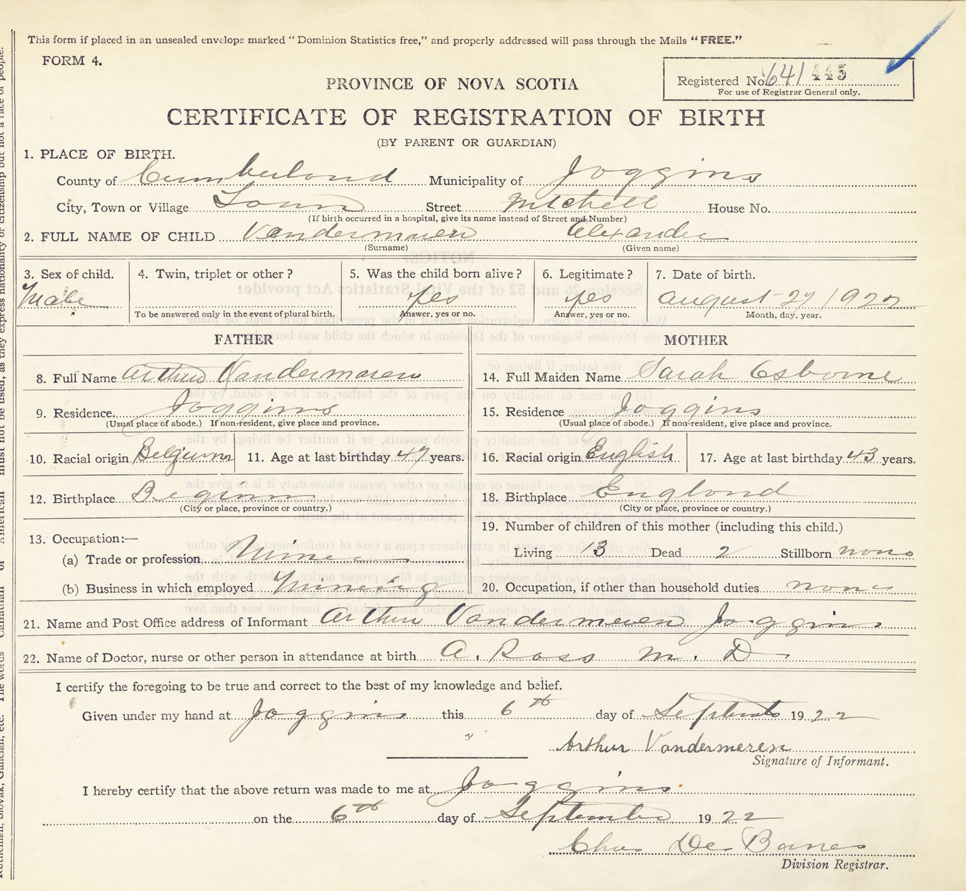 This form if placed in an unsealed envelope marked "Dominion Statistics free," and properly addressed will pass through the Mails "FREE."
FORM 4.
Registered No. 641 445
For use of Registrar General only.
PROVINCE OF NOVA SCOTIA
CERTIFICATE OF REGISTRATION OF BIRTH
(BY PARENT OR GUARDIAN)
1. PLACE OF BIRTH.
County of Cumberland Municipality of Joggins
City, Town or Village Town Street Mitchell House No.
(If birth occurred in a hospital, give its name instead of Street and Number)
2. FULL NAME OF CHILD Vandermeren Alexander
(Surname) (Given name)
3. Sex of child. 4. Twin, triplet or other? 5. Was the child born alive? 6. Legitimate? 7. Date of birth.
Male Yes Yes August 27 1922
To be answered only in the event of plural birth. Answer, yes or no. Answer, yes or no. Month, day, year.
FATHER MOTHER
8. Full Name Arthur Vandermeren 14. Full Maiden Name Sarah Osborne
9. Residence. Joggins 15. Residence Joggins
(Usual place of abode.) If non-resident, give place and province. (Usual place of abode.) If non-resident, give place and province.
10. Racial origin Belgium 11. Age at last birthday 47 years. 16. Racial origin English 17. Age at last birthday 43 years.
12. Birthplace Begium 18. Birthplace England
(City or place, province or country.) (City or place, province or country.)
19. Number of children of this mother (including this child.)
13. Occupation:—
(a) Trade or profession. Miner Living 13 Dead 2 Stillborn none
(b) Business in which employed Mining 20. Occupation, if other than household duties none
21. Name and Post Office address of Informant Arthur Vandermeren Joggins
22. Name of Doctor, nurse or other person in attendance at birth A. Ross M. D
I certify the foregoing to be true and correct to the best of my knowledge and belief.
Given under my hand at Joggins this 6th day of September 1922
Arthur Vandermeren
Signature of Informant.
I hereby certify that the above return was made to me at Joggins
on the 6th day of September 1922
Chas De Banes
Division Registrar.